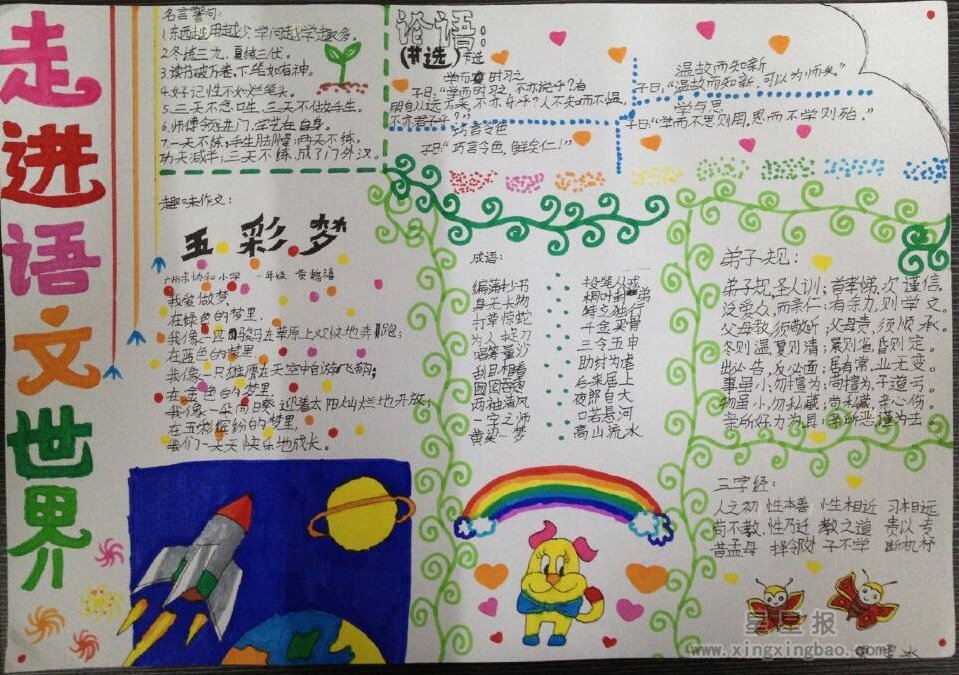 走进语文世界
名言警句:
1.东西越用越少,学问越学越多。
2.冬练三九,夏练三伏。
3.读书破万卷,下笔如有神。
4.好记性不如烂笔头。
5.三天不念口生,三天不做手生。
6.师傅领进门,学艺在自身。
7.一天不练,手生脚慢;两天不练,
功夫减半;三天不练,成了门外汉。
论语:
(节选)
学而时习之
子曰:“学而时习之,不亦说乎?有
朋自远方来,不亦乐乎?人不知而不愠,
不亦君子乎?”
巧言令色
子曰:“巧言令色,鲜矣仁!”
温故而知新
子曰:“温故而知新,可以为师矣。”
学与思
子曰:“学而不思则罔,思而不学则殆。”
趣味作文:
五彩梦
广州市协和小学 一年级
我爱做梦,
在绿色的梦里,
我像一匹骏马在草原上欢快地奔跑;
在蓝色的梦里
我像一只雄鹰在天空中自由飞翔;
在金色的梦里
我像一朵向日葵迎着太阳灿烂地开放;
在五彩缤纷的梦里,
我们一天天快乐地成长。
成语:
编蒲抄书 投笔从戎
身无长物 桐叶封弟
打草惊蛇 特立独行
为人捉刀 千金买骨
唱筹量沙 三令五申
刮目相看 助纣为虐
后来居上
两袖清风 夜郎自大
一字之师 口若悬河
黄粱一梦 高山流水
弟子规:
弟子规,圣人训;首孝悌,次谨信。
泛爱众,而亲仁;有余力,则学文。
父母教,须敬听;父母责,须顺承。
冬则温,夏则凊;晨则省,昏则定。
出必告,反必面;居有常,业无变。
事虽小,勿擅为;苟擅为,子道亏。
物虽小,勿私藏;苟私藏,亲心伤。
亲所好,力为具;亲所恶,谨为去。
三字经:
人之初 性本善 性相近 习相远
苟不教 性乃迁 教之道 贵以专
昔孟母 择邻处 子不学 断机杼
星星报
www.xingxingbao.com